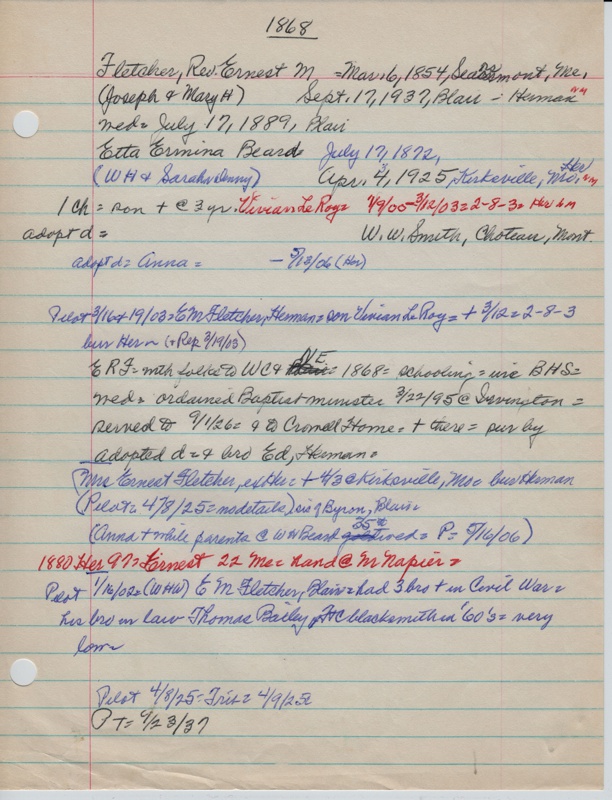 1868
Fletcher, Rev. Ernest M = Mar. 6, 1854, Searsmont, Me.
(Joseph & Mary H) Sept. 17, 1937, Blair - Herman NM
med = July 17, 1889, Blair
Etta Ermina Beard = July 17, 1872,
(WH & Sarah Denny) Apr. 4, 1925, Kirksville, Mo. Her NM
1 ch = son + @ 3 yr. Vivian LeRoy = 1/9/00 - 3/12/03 = 2-8-3 = Her NM
adopt d = W.W. Smith, Choteau, Mont.
adopt d = Anna = - 5/13/06 (Her)
Pilot 3/16 & 19/03 = E M Fletcher, Herman = son Vivian LeRoy = + 3/12 = 2-8-3
bur Her (= Rep 3/19/03)
ERF = with folks to WC & NE = 1868 = schooling = inc BHS =
med = ordained Baptist minister 3/22/95 @ Irvington =
served to 9/1/26 = & to Crowell Home = + there = sur by
adopted d = & bro Ed, Herman =
(Mrs Ernest Fletcher, ex Her = + 4/3 @ Kirksville, Mo = bur Herman
(Pilot = 4/8/25 = no details) sis of Byron, Blair =
(Anna + while parents @ WH Beard 25th = P = 5/16/06)
1880 Her 97 = Ernest 22 Me = hand @ M Napier =
Pilot 1/16/02 = (WHW) E M Fletcher, Blair = had 3 bro + in Civil War =
his bro in law Thomas Bailey, FtC blacksmith in '60's = very
low =
Pilot 4/8/25 = Trib = 4/9/25
PT = 9/23/37